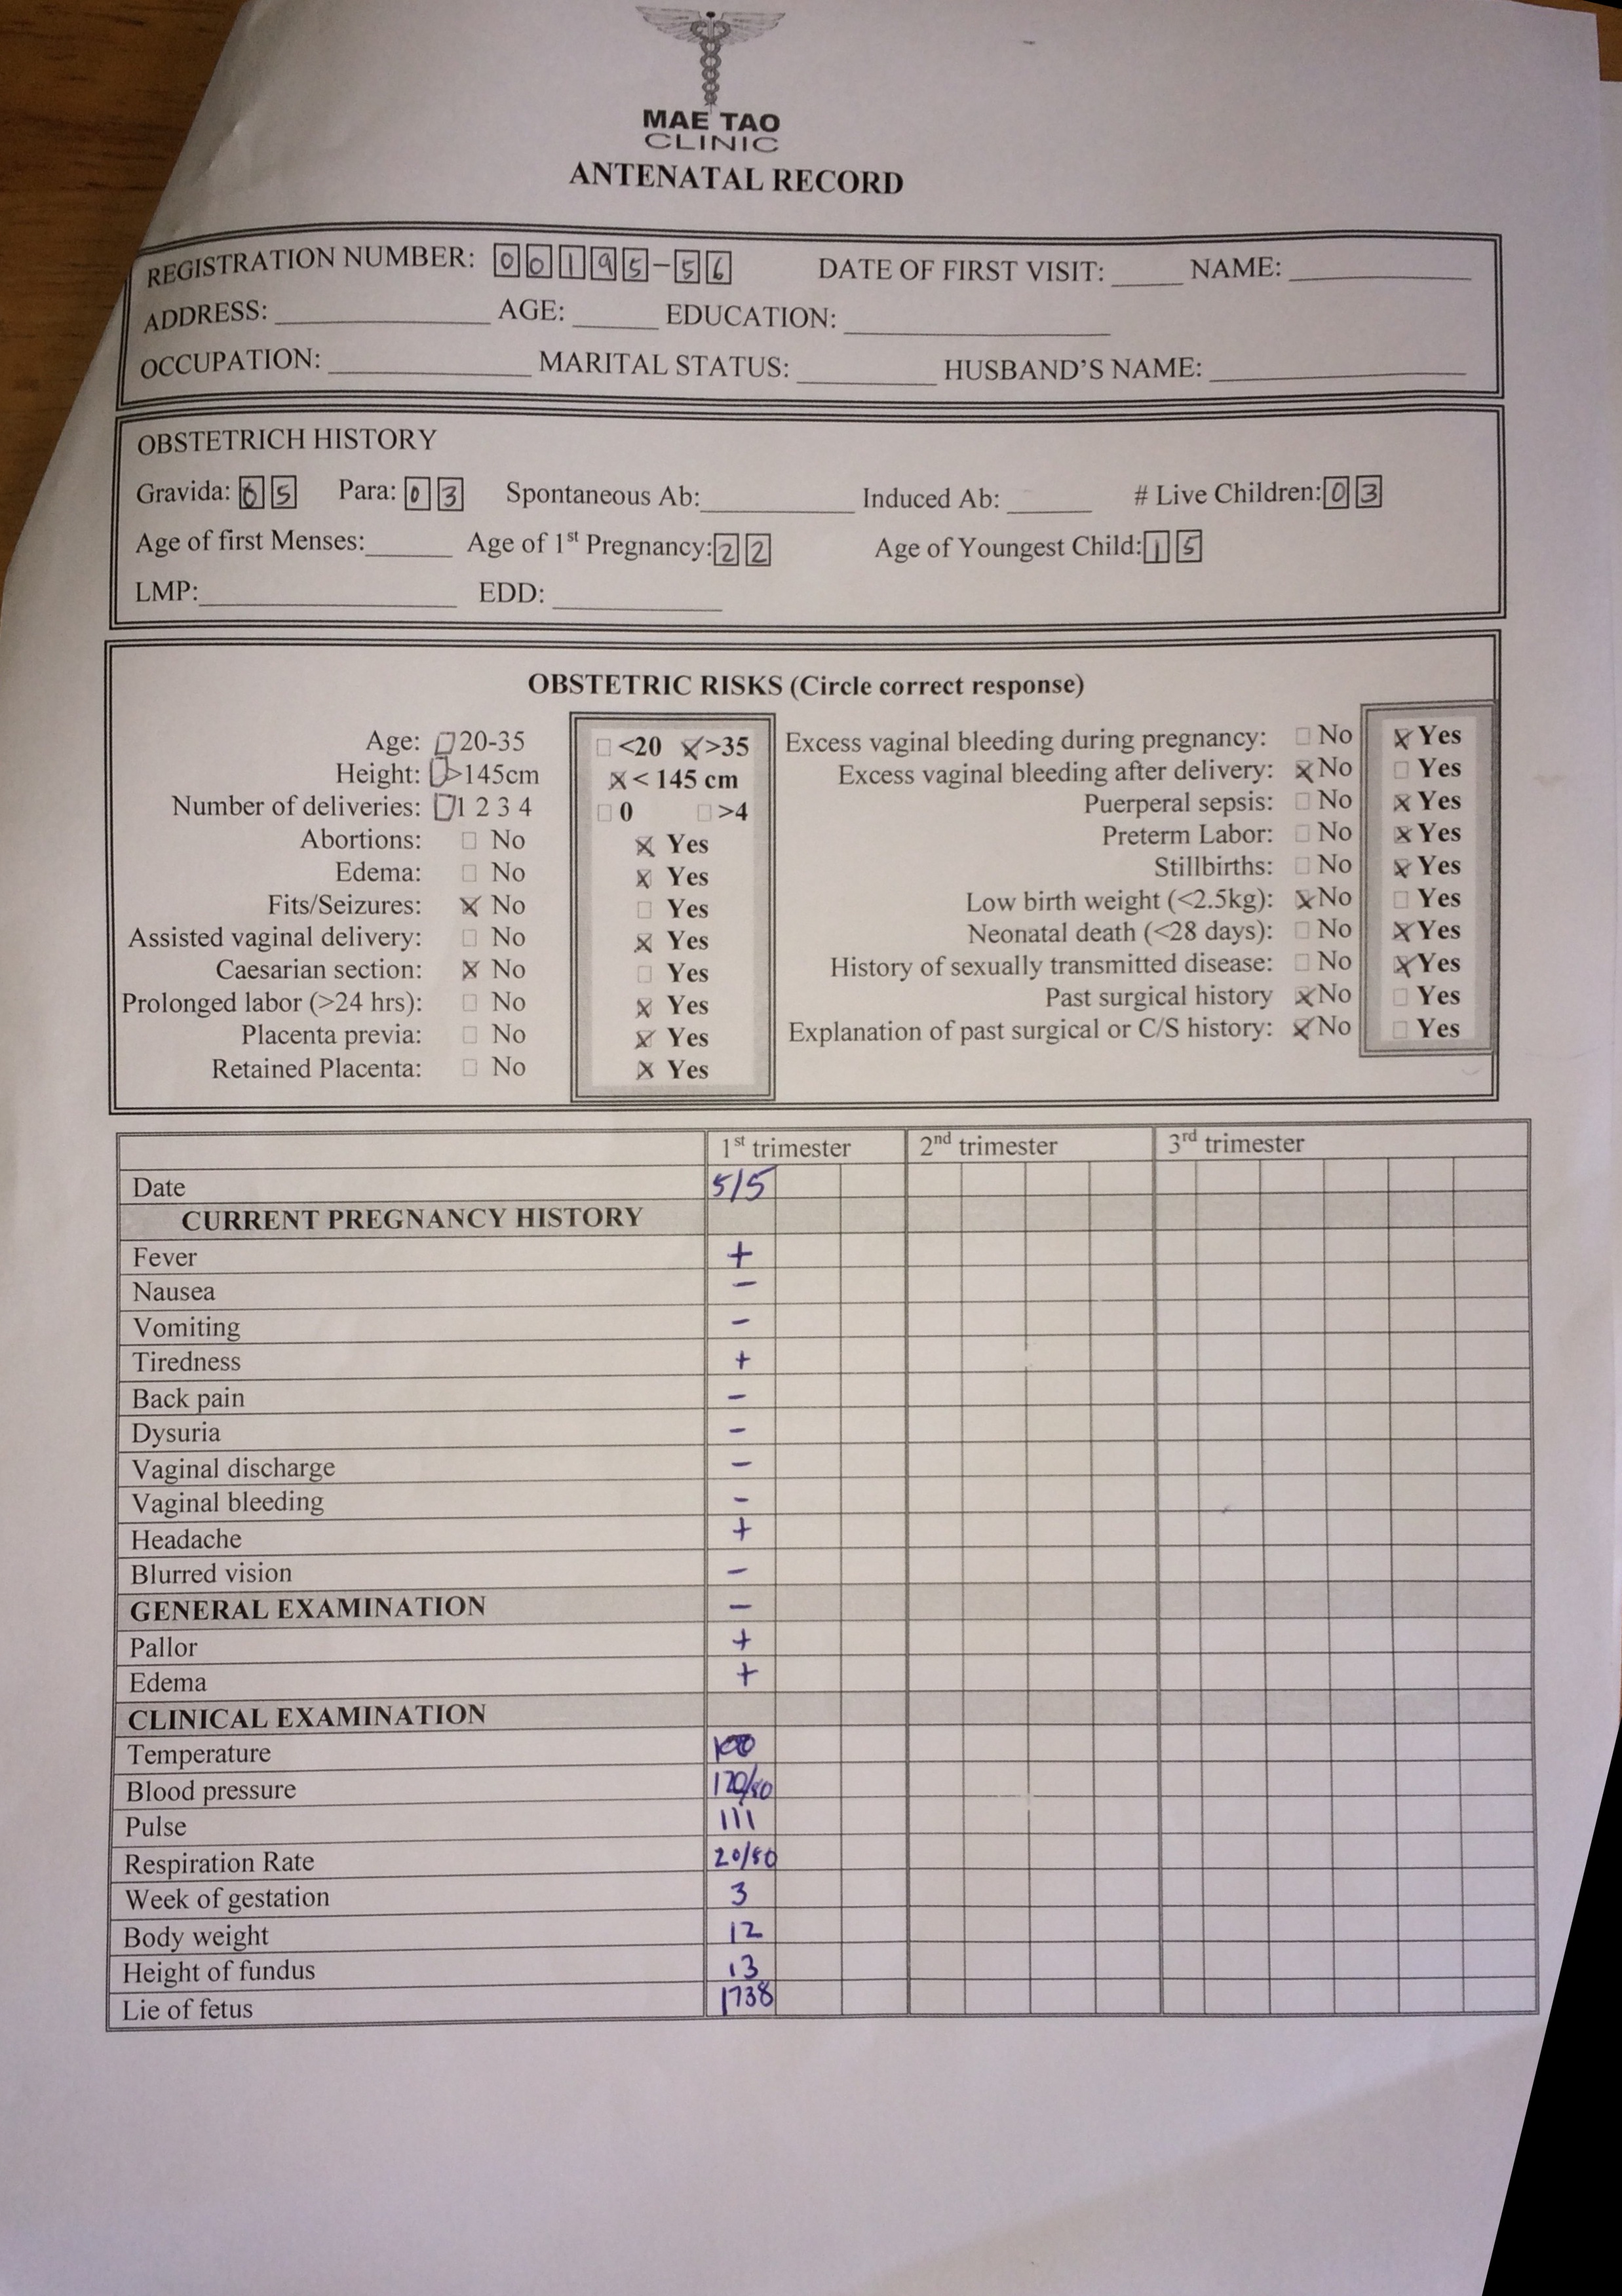 MAE TAO
CLINIC
ANTENATAL RECORD
REGISTRATION NUMBER: 00195-56 DATE OF FIRST VISIT: NAME:
ADDRESS: AGE: EDUCATION:
OCCUPATION: MARITAL STATUS: HUSBAND'S NAME:
OBSTETRICH HISTORY
Gravida: 05 Para: 03 Spontaneous Ab: Induced Ab: # Live Children: 03
Age of first Menses: Age of 1st Pregnancy: 22 Age of Youngest Child: 15
LMP: EDD:
OBSTETRIC RISKS (Circle correct response)
Age: 20-35 <20 >35
Height: >145cm < 145 cm
Number of deliveries: 1 2 3 4 0 >4
Abortions: No Yes
Edema: No Yes
Fits/Seizures: No Yes
Assisted vaginal delivery: No Yes
Caesarian section: No Yes
Prolonged labor (>24 hrs): No Yes
Placenta previa: No Yes
Retained Placenta: No Yes
Excess vaginal bleeding during pregnancy: No Yes
Excess vaginal bleeding after delivery: No Yes
Puerperal sepsis: No Yes
Preterm Labor: No Yes
Stillbirths: No Yes
Low birth weight (<2.5kg): No Yes
Neonatal death (<28 days): No Yes
History of sexually transmitted disease: No Yes
Past surgical history No Yes
Explanation of past surgical or C/S history: No Yes
1st trimester 2nd trimester 3rd trimester
Date 5/5
CURRENT PREGNANCY HISTORY
Fever +
Nausea -
Vomiting -
Tiredness +
Back pain -
Dysuria -
Vaginal discharge -
Vaginal bleeding -
Headache +
Blurred vision -
GENERAL EXAMINATION -
Pallor +
Edema +
CLINICAL EXAMINATION
Temperature 100
Blood pressure
Pulse 111
Respiration Rate
Week of gestation 3
Body weight 12
Height of fundus 13
Lie of fetus 1738